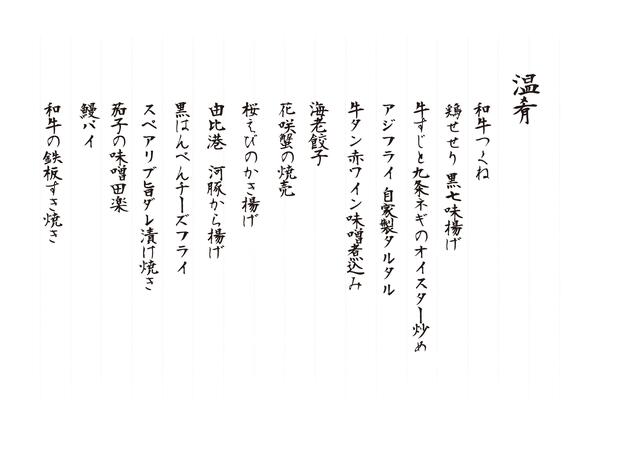 温肴
和牛つくね
鶏せせり 黒七味揚げ
牛すじと九条ネギのオイスター炒め
アジフライ 自家製タルタル
牛タン赤ワイン味噌煮込み
海老餃子
花咲蟹の焼売
桜えびのかき揚げ
由比港 河豚から揚げ
黒はんぺんチーズフライ
スペアリブ旨ダレ漬け焼き
茄子の味噌田楽
鰻パイ
和牛の鉄板すき焼き